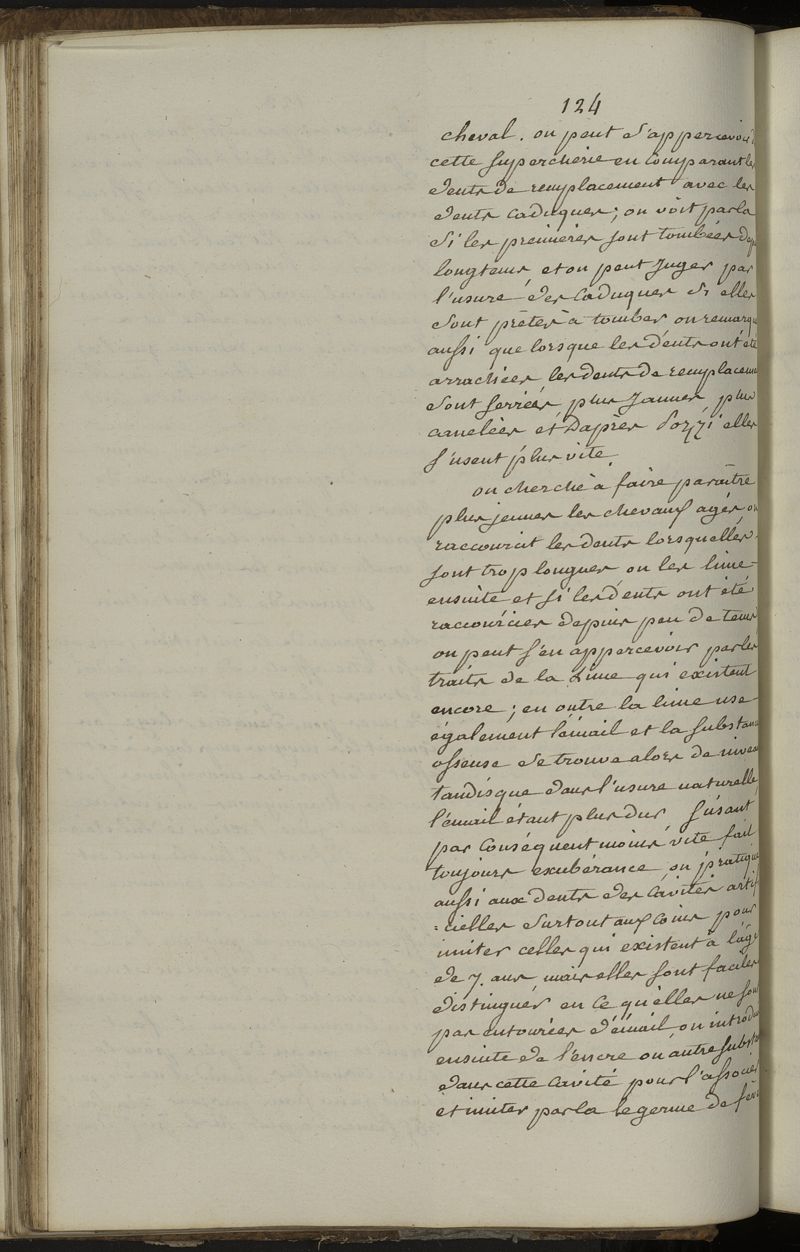 124
cheval. on peut s'appercevoir d
cette supercherie en Comparant les
dents de remplacement avec les
dents caduques; on voit par la
si les premieres sont tombées dep
longtems et on peut Juger par
l'usure des Caduques si elles
sont prêtes à tomber on remarqu
aussi que lorsque les dents ont été
arrachées les dents de remplacem
sont serrées plus Jaunes plus
canelées et Daprès Pozzi elles
s'usent plus vite
on cherche à faire paraître
plus jeunes les chevaux agés on
raccourcit les dents lorsquelles
sont trop longues on les lime
ensuite et si les dents ont été
raccourcies depuis peu de tems
on peut s'en appercevoir par les
traits de la Lime qui existent
encore; en outre la lime use
également l'émail et la substan
osseuse se trouve alors de nivea
tandisque dans l'usure naturelle
l'émail étant plus dur s'usant
par Conséquent moins vite fait
toujours exubérance, on pratiqu
aussi aux dents des Cavités artif
=cielles surtout aux Coins pour
imiter celles qui existent à l'âge
de 7. ans mais elles sont faciles
distingués en Ce qu'elles ne son
pas entourées d'émail, on introdu
ensuite de l'encre ou autre substa
dans cette Cavité pour l'
et imiter par la le germe de fev